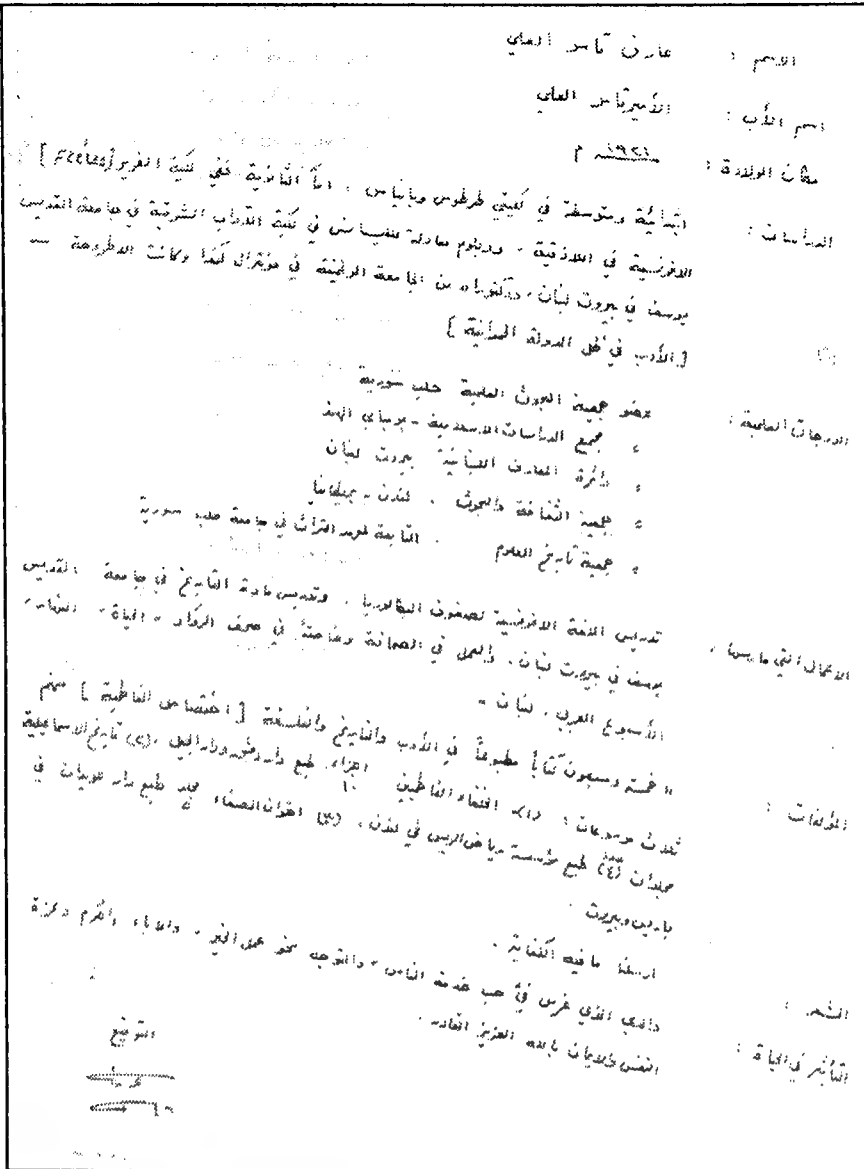 الاسم : عارف تامر العلي
اسم الأب : الأمير تامر العلي
مكان الولادة : ١٩٢١ م
الدراسات : ابتدائية ومتوسطة في كليتي طرطوس وبانياس . امّا الثانوية ففي كلية الفرير [Frères]
الافرنسية في اللاذقية - ودبلوم معادلة لليسانس في كلية الآداب الشرقية في جامعة القديس
يوسف في بيروت لبنان ، ودكتوراه من الجامعة الوطنية في مونتريال كندا وكانت الاطروحة —
[الأدب في ظل الدولة الحمدانية]
الدرجات العلمية : عضو جمعية البحوث العلمية حلب سورية
، مجمع الدراسات الاسلامية - بومباي الهند
، دائرة المعارف اللبنانية بيروت لبنان
، جمعية الثقافة والبحوث . لندن - بريطانيا
، جمعية تاريخ العلوم . التابعة لمعهد التراث في جامعة حلب سورية
الاعمال التي مارسها : تدريس اللغة الافرنسية لصفوف البكالوريا . وتدريس مادة التاريخ في جامعة القديس
يوسف في بيروت لبنان . والعمل في الصحافة وخاصة في صحف الرواد - الحياة -
الأسبوع العربي . لبنان -
المؤلفات : " خمسة وسبعون كتاباً مطبوعاً في الأدب والتاريخ والفلسفة [اختصاص الفاطمية] منهم
ثلاث موسوعات : (١) الخلفاء الفاطميين ١٠ اجزاء طبع دار دمشق ودار الجيل . (٢) تاريخ الاسماعيلية
مجلدان (٤) طبع مؤسسة رياض الريس في لندن . (٣) اخوان الصفاء ٤ مجلد طبع دار عويدات في
باريس وبيروت .
الشعر : ارسلنا ما فيه الكفاية .
التأثير في الحياة : والدي الذي غرس فيّ حب خدمة الناس ، والتوجه نحو عمل الخير ، والاباء والكرم وعزة
النفس والايمان بالله العزيز القادر .
التوقيع